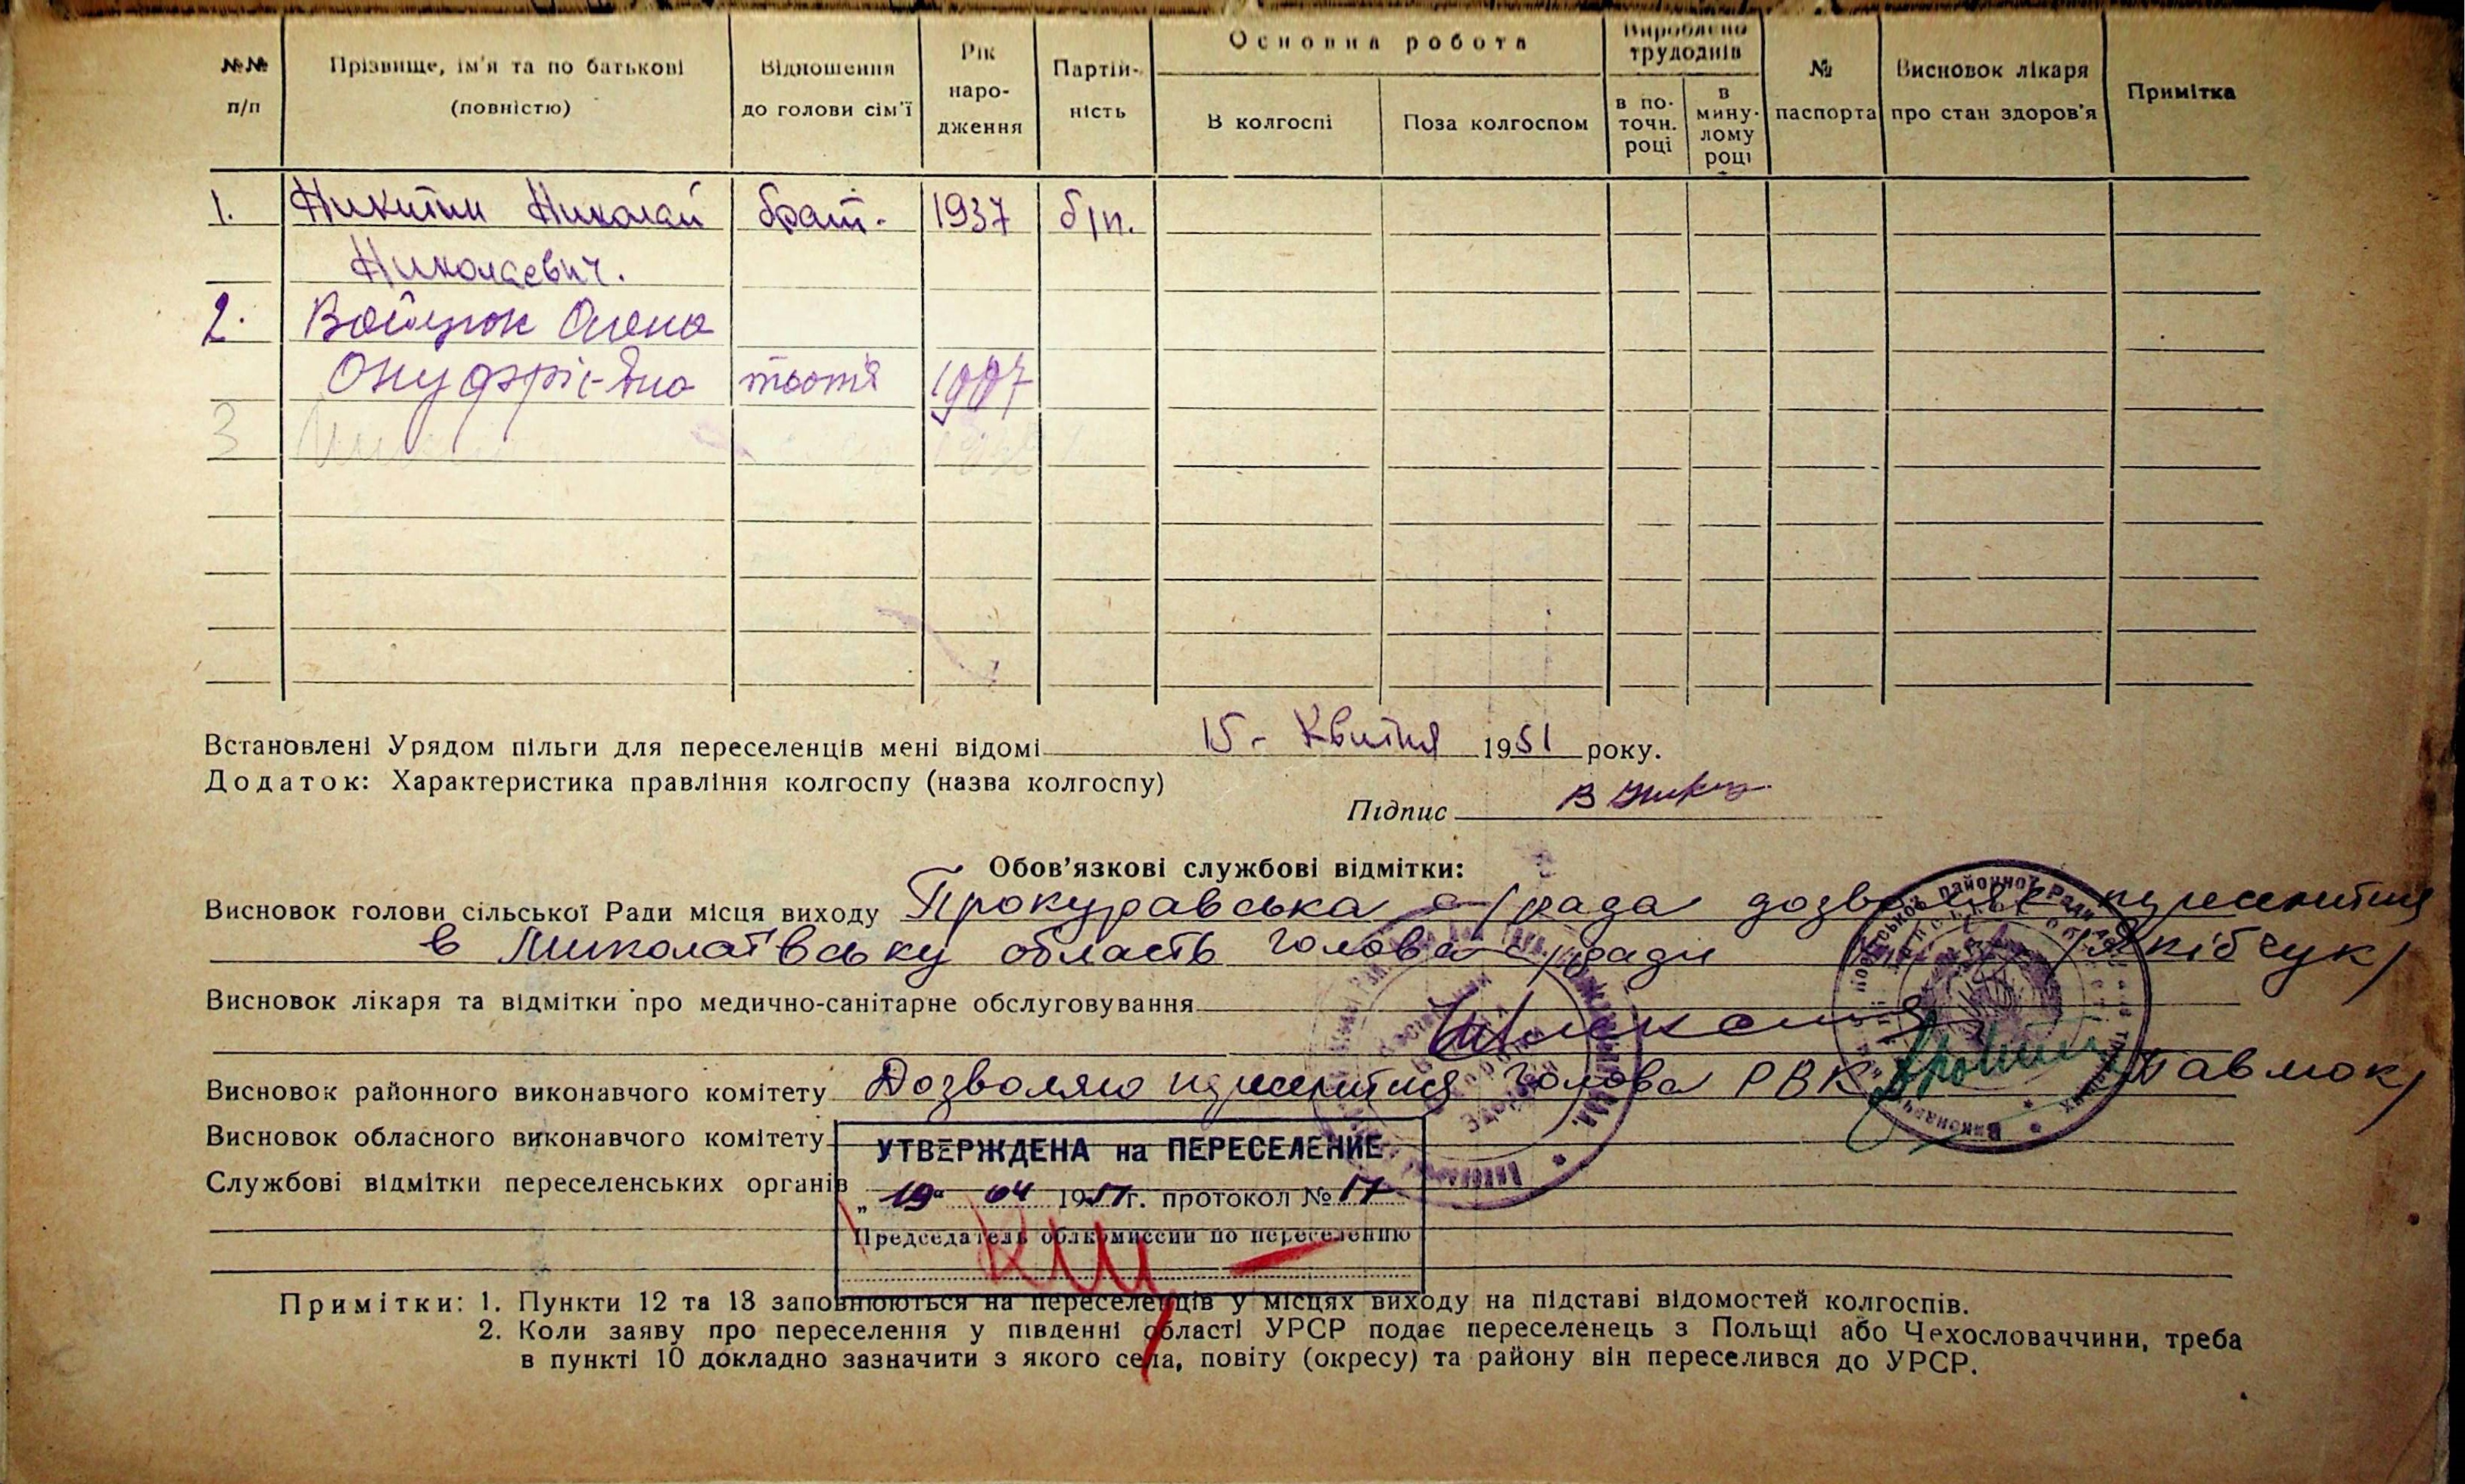 №№ п/п
Прізвище, ім'я та по батькові (повністю)
Відношення до голови сім'ї
Рік народження
Партій-ність
Основна робота
В колгоспі
Поза колгоспом
Вироблено трудоднів
в по-точн. році
в мину-лому році
№ паспорта
Висновок лікаря про стан здоров'я
Примітка
1. Никитин Николай брат. 1937 б/п.
Николаевич.
2. Войцюк Олена
Онуфрі-вна тьотя 1907
3
Встановлені Урядом пільги для переселенців мені відомі 15 - Квітня 1951 року.
Додаток: Характеристика правління колгоспу (назва колгоспу)
Підпис
Обов'язкові службові відмітки:
Висновок голови сільської Ради місця виходу Прокуравська с/рада дозволяє переселитися
в Миколаївську область голова с/ради /Якібчук/
Висновок лікаря та відмітки про медично-санітарне обслуговування
Висновок районного виконавчого комітету Дозволяю переселитися Голова РВК /Павлюк/
Висновок обласного виконавчого комітету
УТВЕРЖДЕНА на ПЕРЕСЕЛЕНИЕ
Службові відмітки переселенських органів
„19" 04 1951г. протокол № 17
Председатель облкомиссии по переселению
Примітки: 1. Пункти 12 та 13 заповнюються на переселенців у місцях виходу на підставі відомостей колгоспів.
2. Коли заяву про переселення у південні області УРСР подає переселенець з Польщі або Чехословаччини, треба
в пункті 10 докладно зазначити з якого села, повіту (окресу) та району він переселився до УРСР.